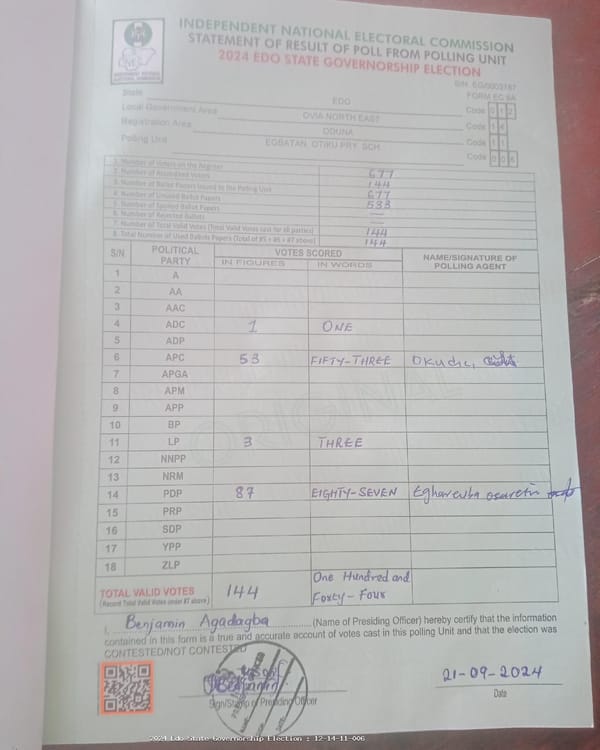 INDEPENDENT NATIONAL ELECTORAL COMMISSION
STATEMENT OF RESULT OF POLL FROM POLLING UNIT
2024 EDO STATE GOVERNORSHIP ELECTION
S/N EG/0003187
FORM EC 8A
State EDO Code 0 1 2
Local Government Area OVIA NORTH EAST Code 1 4
Registration Area ODUNA Code 1 1
Polling Unit EGBATAN, OTIKU PRY. SCH Code 0 0 6
1. Number of Voters on the Register 677
2. Number of Accredited Voters 144
3. Number of Ballot Papers Issued to the Polling Unit 677
4. Number of Unused Ballot Papers 533
5. Number of Spoiled Ballot Papers —
6. Number of Rejected Ballots —
7. Number of Total Valid Votes (Total Valid Votes cast for all parties) 144
8. Total Number of Used Ballots Papers (Total of #5 + #6 + #7 above) 144
S/N POLITICAL PARTY VOTES SCORED NAME/SIGNATURE OF POLLING AGENT
IN FIGURES IN WORDS
1 A
2 AA
3 AAC
4 ADC 1 ONE
5 ADP
6 APC 53 FIFTY-THREE Okudia,
7 APGA
8 APM
9 APP
10 BP
11 LP 3 THREE
12 NNPP
13 NRM
14 PDP 87 EIGHTY-SEVEN Egharevba osaretin
15 PRP
16 SDP
17 YPP
18 ZLP
TOTAL VALID VOTES 144 One Hundred and Forty-Four
(Record Total Valid Votes under #7 above)
I, Benjamin Agadagba (Name of Presiding Officer) hereby certify that the information
contained in this form is a true and accurate account of votes cast in this polling Unit and that the election was
CONTESTED/NOT CONTESTED
Sign/Stamp of Presiding Officer
21-09-2024
Date
ORIGINAL
2024 Edo State Governorship Election : 12-14-11-006